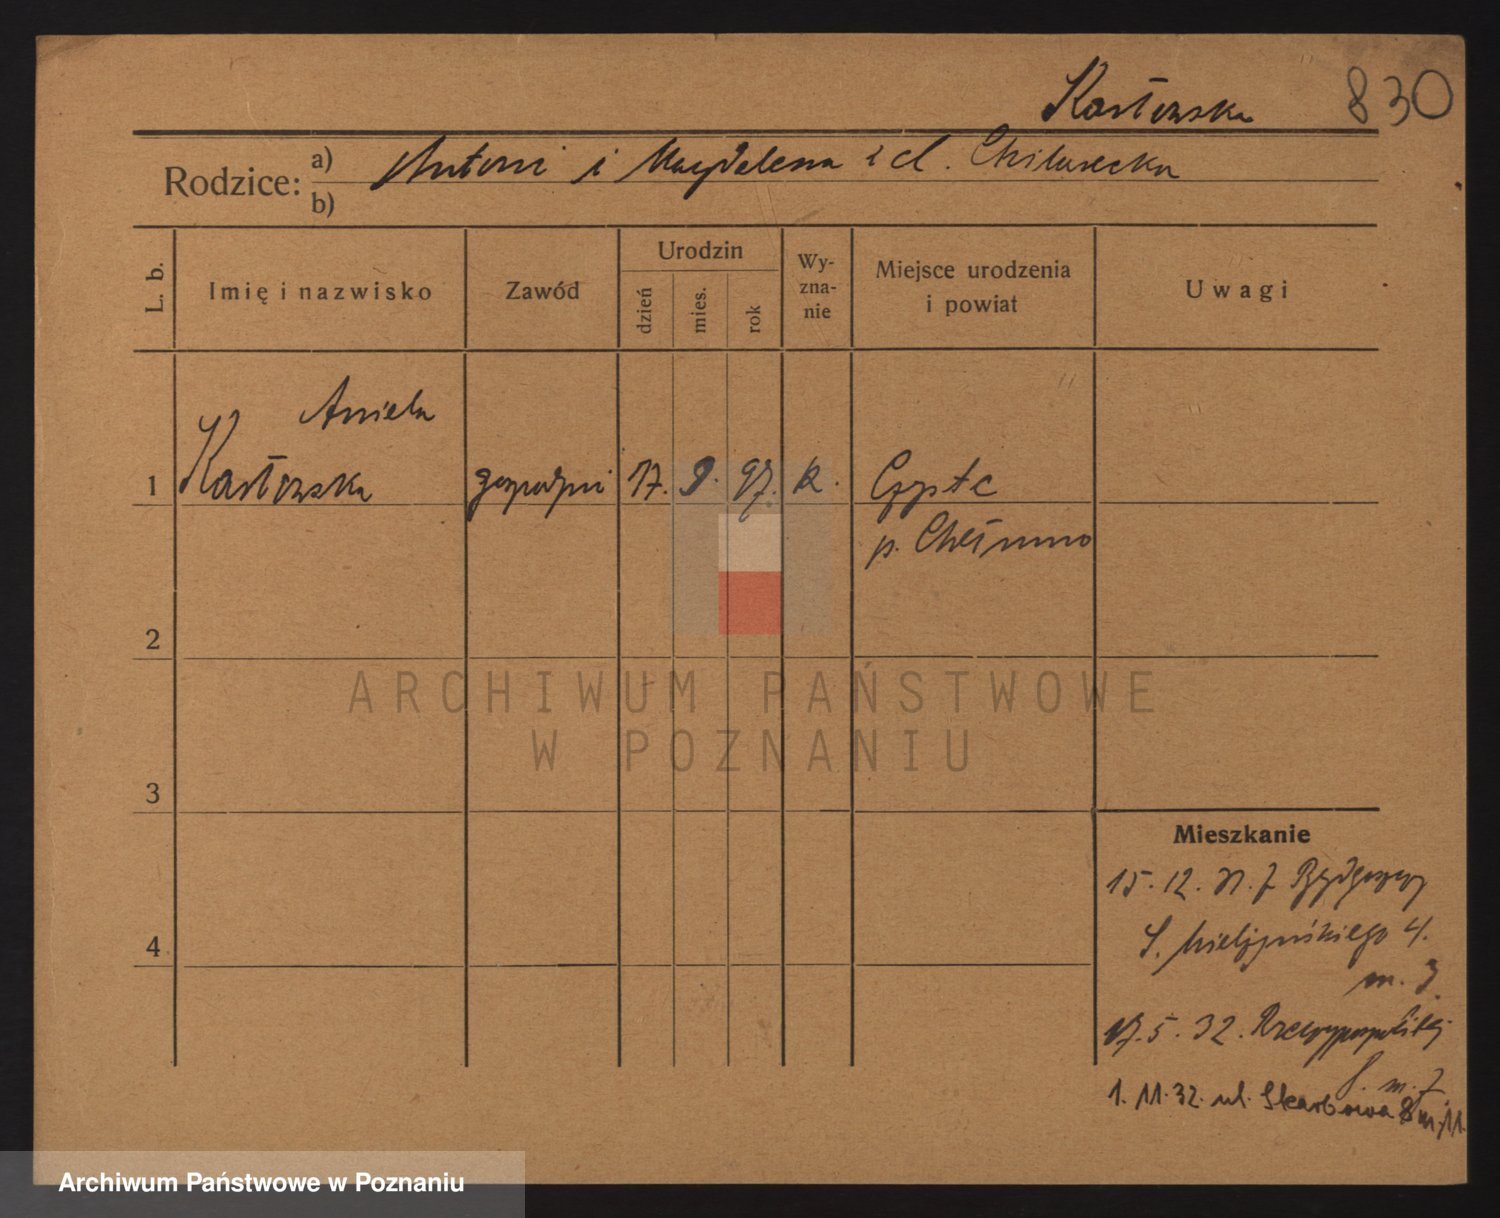 Karłowska 830
Rodzice: a) Antoni i Magdalena z d.
b)
L. b.
Imię i nazwisko
Zawód
Urodzin
dzień
mies.
rok
Wy-
zna-
nie
Miejsce urodzenia
i powiat
Uwagi
Aniela
1 Karłowska 17. 9. 97. k.
p. Chełmno
2
ARCHIWUM PAŃSTWOWE
W POZNANIU
3
Mieszkanie
15. 12. 31. z Bydgoszczy
S. Mielżyńskiego 4.
4
m. 3.
17. 5. 32. Rzeczypospolitej
m. 7
1. 11. 32. ul. Skarbowa 8 m. 11.
Archiwum Państwowe w Poznaniu